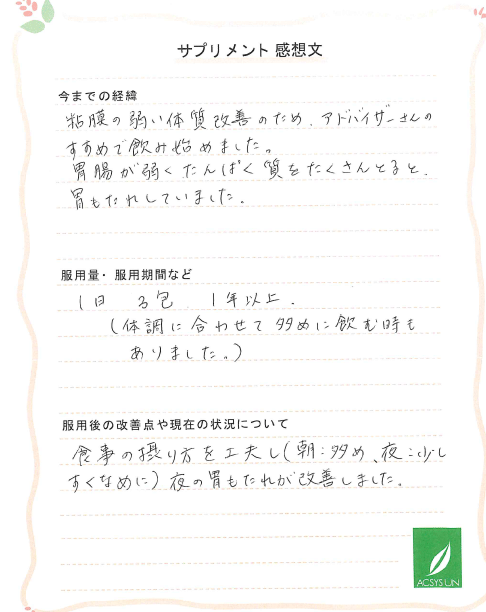 サプリメント 感想文
今までの経緯
粘膜の弱い体質改善のため、アドバイザーさんの
すすめで飲み始めました。
胃腸が弱くたんぱく質をたくさんとると、
胃もたれしていました。
服用量・服用期間など
1日 3包 1年以上.
(体調に合わせて多めに飲む時も
ありました。)
服用後の改善点や現在の状況について
食事の摂り方を工夫し(朝:多め、夜:少し
すくなめに)夜の胃もたれが改善しました。
ACSYS LIN